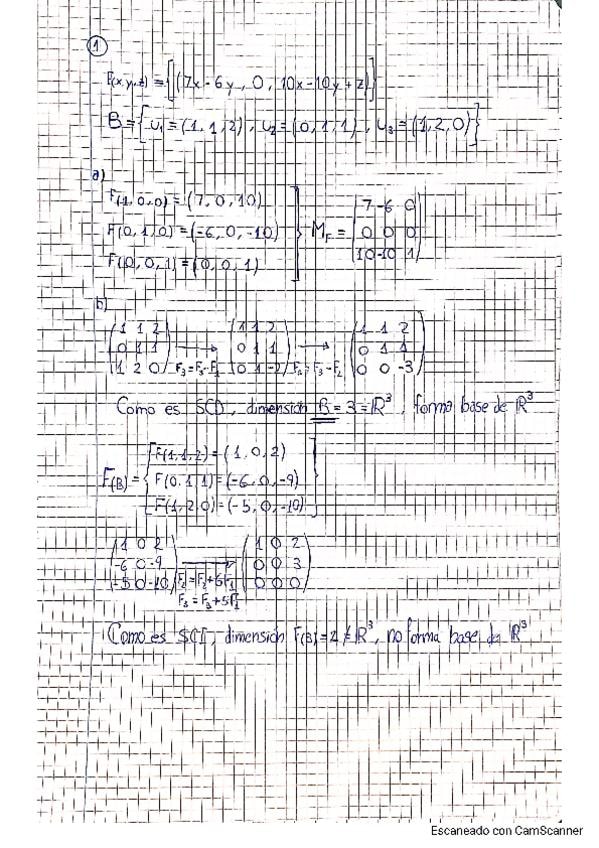 1
F(x,y,z) = {(7x-6y, 0, 10x-10y+z)}
B = {u₁ = (1, 1, 2), u₂ = (0, 1, 1), u₃ = (1, 2, 0)}
a)
F(1, 0, 0) = (7, 0, 10)
F(0, 1, 0) = (-6, 0, -10)
F(0, 0, 1) = (0, 0, 1)
M_F =
7 -6 0
0 0 0
10 -10 1
b)
1 1 2
0 1 1
1 2 0
F₃=F₃-F₁
1 1 2
0 1 1
0 1 -2
F₃=F₃-F₂
1 1 2
0 1 1
0 0 -3
Como es SCD, dimensión B = 3 = ℝ³, forma base de ℝ³
F(B) =
F(1, 1, 2) = (1, 0, 2)
F(0, 1, 1) = (-6, 0, -9)
F(1, 2, 0) = (-5, 0, -10)
1 0 2
-6 0 -9
-5 0 -10
F₂ = F₂+6F₁
F₃ = F₃+5F₁
1 0 2
0 0 3
0 0 0
Como es SCI, dimensión F(B) = 2 ≠ ℝ³, no forma base de ℝ³
Escaneado con CamScanner